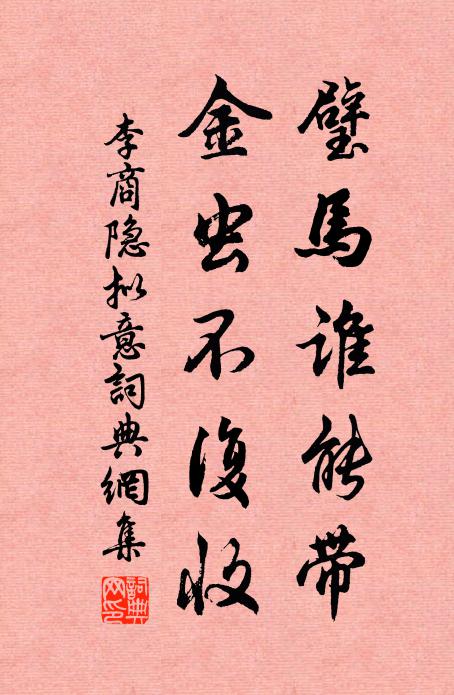 璧馬誰能帶
金虫不復收
李商隐拟意詞典網集
詞典
网印